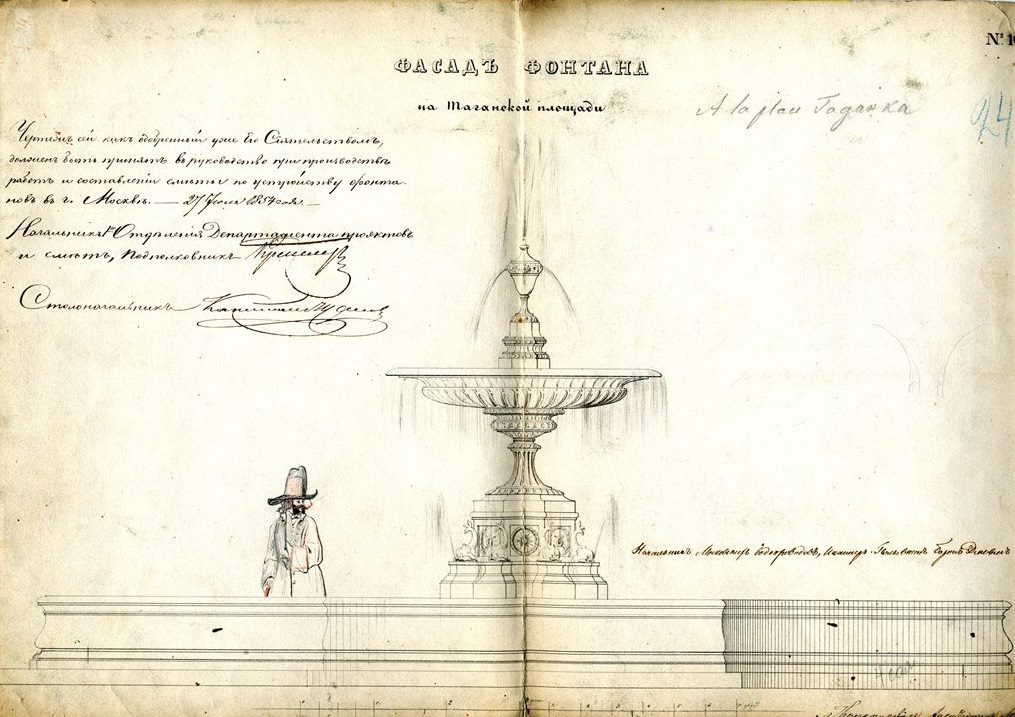 № 1
ФАСАДЪ ФОНТАНА
на Таганской площади
A la place Taganka
24
Чертежъ сей какъ одобренный уже Его Сіятельствомъ,
долженъ быть принятъ въ руководство при производствѣ
работъ и составленіи смѣты по устройству фонта-
новъ въ г. Москвѣ. — 27 Іюля 1854 года. —
Начальникъ Отдѣленія Департамента проэктовъ
и смѣтъ, Подполковникъ
Столоначальникъ Капитанъ
Начальникъ Московскихъ водопроводовъ, Инженеръ-Полковникъ Баронъ Дельвигъ